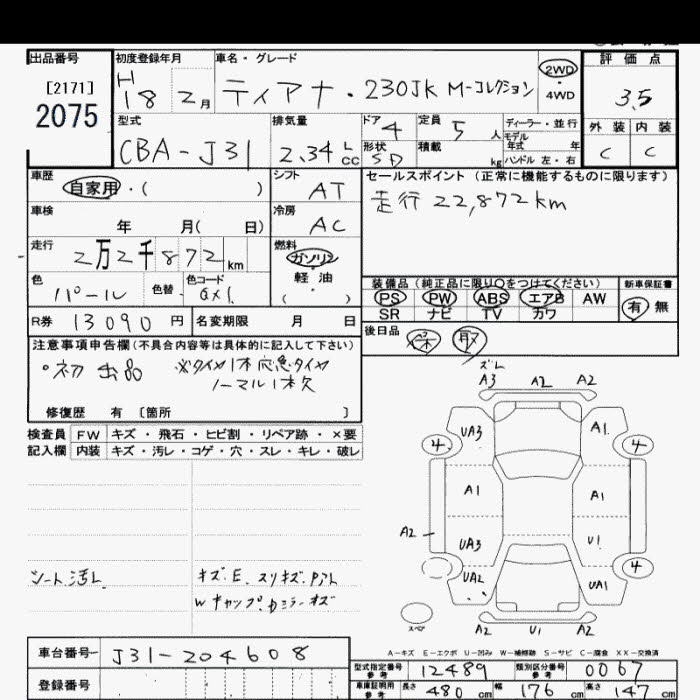 出品番号 初度登録年月 車名・グレード 2WD 評価点
[2171] H 18 2月 ティアナ・230JK M-コレクション ・4WD 3.5
2075
型式 排気量 ドア 4 定員 5人 ディーラー・並行 外装 内装
モデル年式 年
CBA-J31 2.34 L cc 形状 SD 積載 kg ハンドル 左・右 C C
車歴 自家用・( ) シフト AT セールスポイント(正常に機能するものに限ります)
走行22,872km
車検 年 月( 日) 冷房 AC
走行 2万2千872km 燃料 ガソリン
軽油
( )
色 パール 色替 色コード QX1 装備品(純正品に限り○をつけてください) 新車保証書
PS PW ABS エアB AW 有・無
SR ナビ TV カワ
R券 13090円 名変期限 月 日 後日品 保 取
注意事項申告欄(不具合内容等は具体的に記入して下さい)
・初出品 ※タイヤ1本応急タイヤ
ノーマル1本欠
修復歴 有 〔箇所 〕
検査員 FW キズ・飛石・ヒビ割・リペア跡・×要
記入欄 内装 キズ・汚レ・コゲ・穴・スレ・キレ・破レ
ズレ
A3 A2 A2
UA3 A1
4 4
A1 A1
A2
UA3 U1
4
UA2 UA1
スペア A2 U1 A2
シート汚レ キズ.E.スリキズ.
A-キズ E-エクボ U-凹み W-補修跡 S-サビ C-腐食 XX-交換済
車台番号 J31-204608
型式指定番号 参考 12489 類別区分番号 参考 0067
登録番号
車庫証明用 参考 長さ 480cm 幅 176cm 高さ 47cm